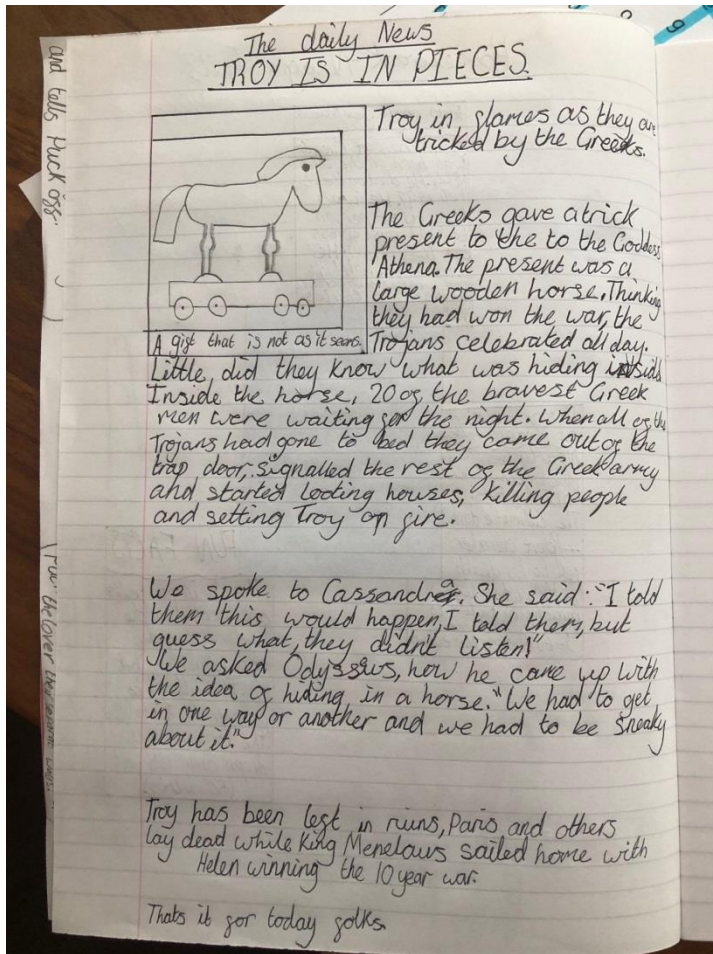 The daily News
TROY IS IN PIECES.
Troy in flames as they are
tricked by the Greeks.
The Greeks gave a trick
present to the to the Goddess
Athena. The present was a
large wooden horse. Thinking
they had won the war, the
Trojans celebrated all day.
A gift that is not as it seems.
Little did they know what was hiding inside
Inside the horse, 20 of the bravest Greek
men were waiting for the night. When all of the
Trojans had gone to bed they came out of the
trap door, signalled the rest of the Greek army
and started looting houses, killing people
and setting Troy on fire.
We spoke to Cassandra. She said: "I told
them this would happen, I told them, but
guess what, they didn't listen!"
We asked Odyssius, how he came up with
the idea of hiding in a horse. "We had to get
in one way or another and we had to be sneaky
about it."
Troy has been left in ruins, Paris and others
lay dead while King Menelaus sailed home with
Helen winning the 10 year war.
Thats it for today folks.
and tells Puck off.